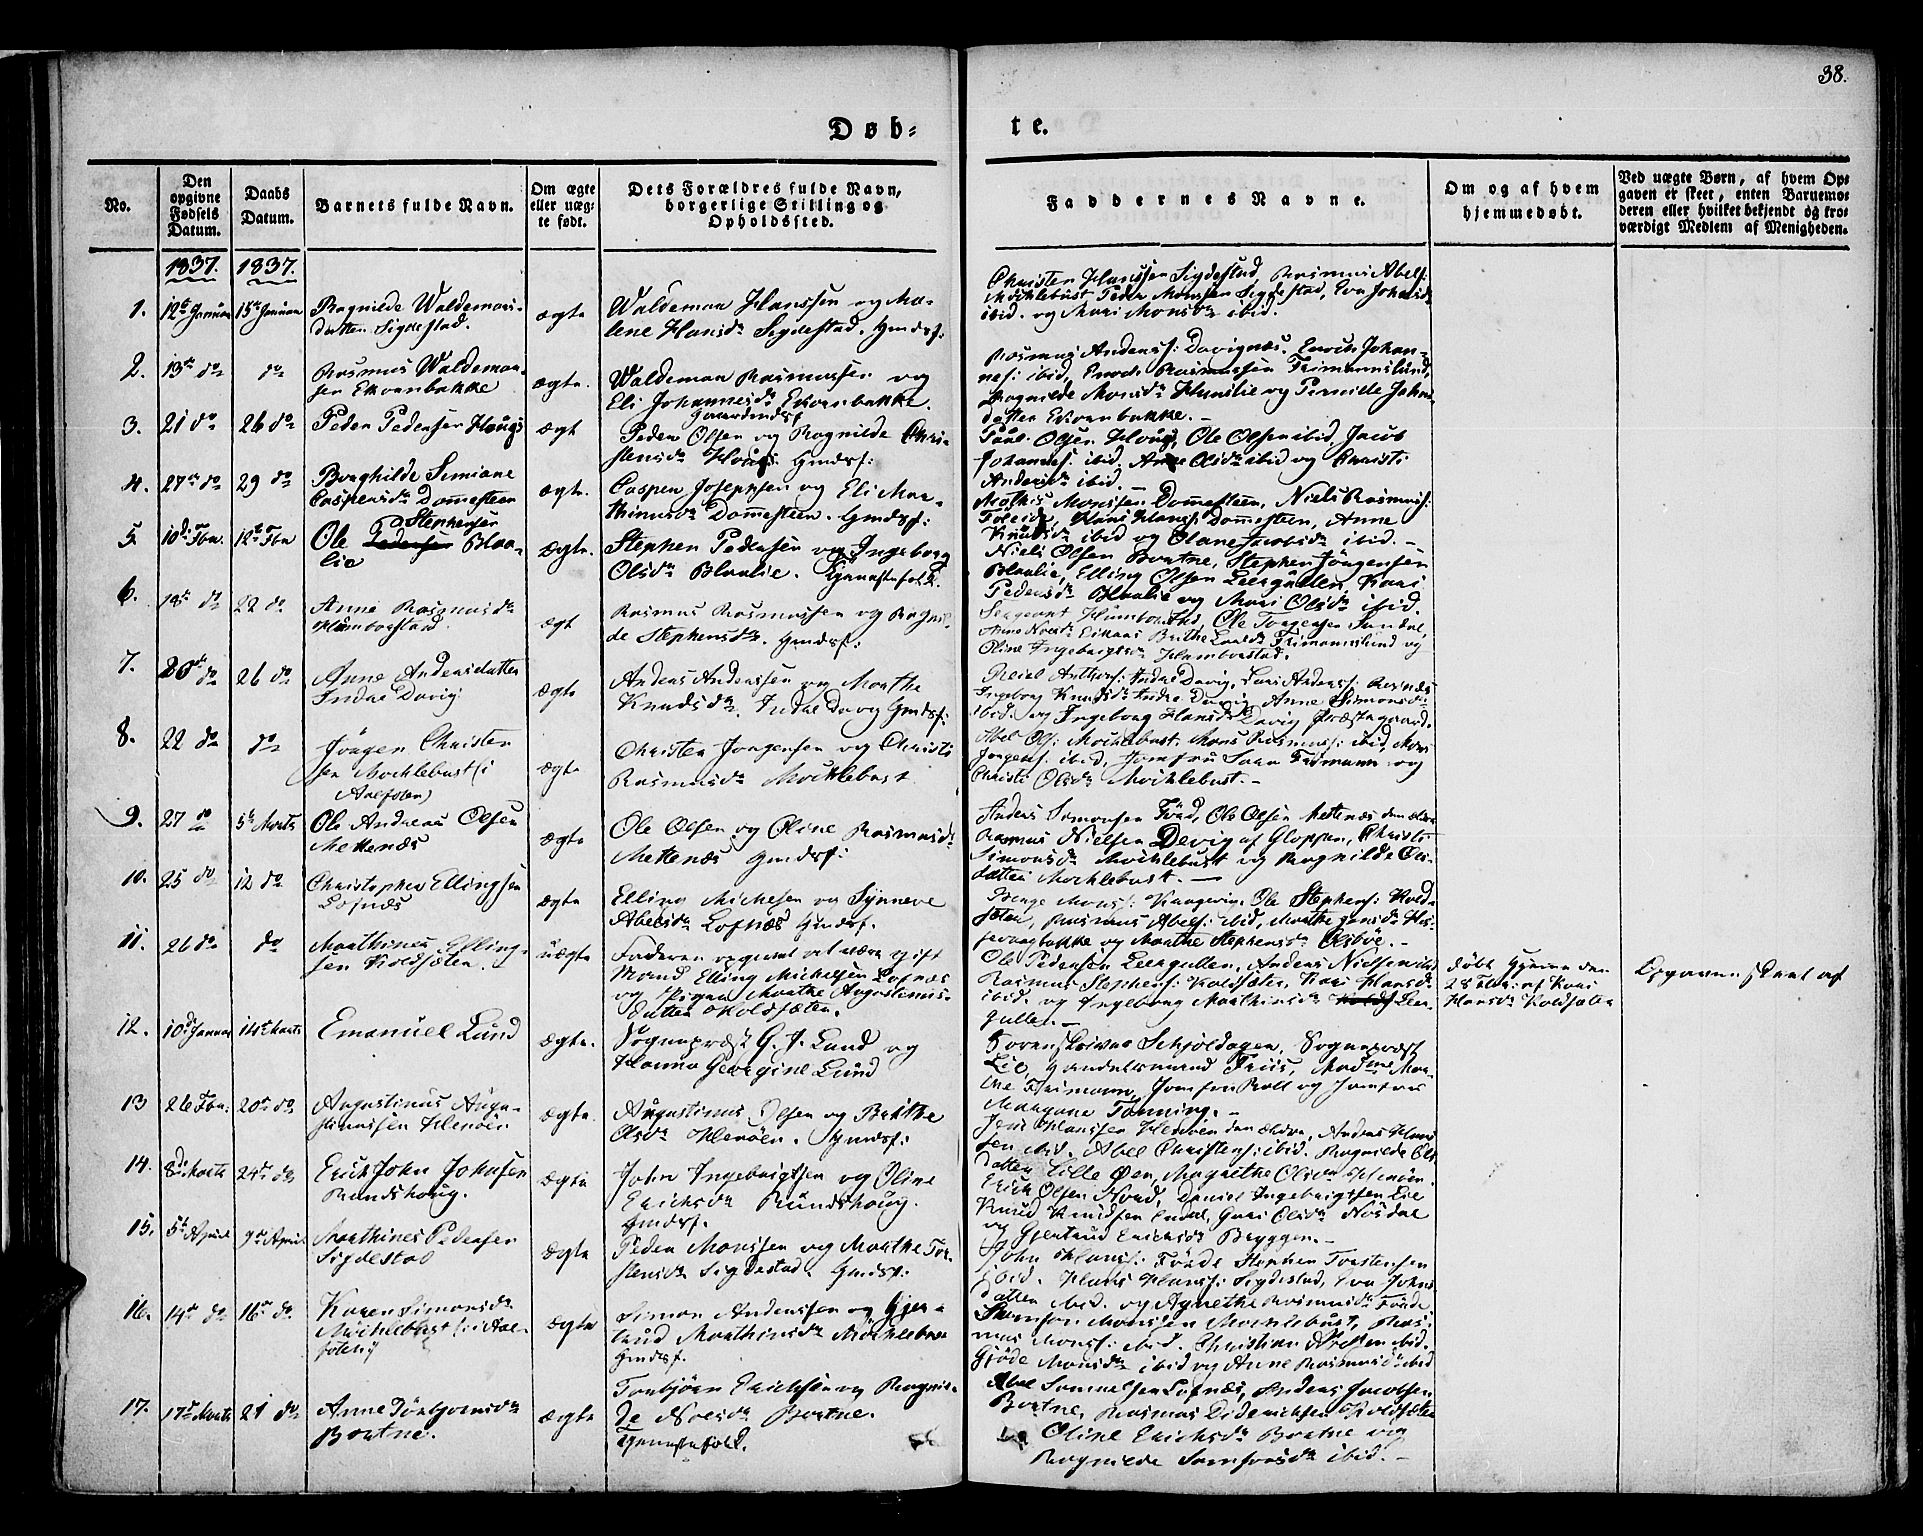 38.
Döb-
te.
No.
Den opgivne Fødsels Datum.
Daabs Datum.
Barnets fulde Navn.
Om ægte eller uægte født.
Dets Forældres fulde Navn, borgerlige Stilling og Opholdssted.
Faddernes Navne.
Om og af hvem hjemmedøbt.
Ved uægte Børn, af hvem Opgaven er skeet, enten Barnemoderen eller hvilket bekjendt og troværdigt Medlem af Menigheden.
1837. 1837.
1. 12te Januar 15de Januar
Ragnilde Waldemars-
datter Sigdestad.
ægte
Waldemar Hanssen og Ma-
lene Hansdr Sigdestad. Gmdsf:
Christen Hanssen Sigdestad, Rasmus Abels:
Möchlebust Peder Monssen Sigdestad, Eva Johnsdr
ibid. og Mari Monsdr ibid.
2. 13de do do
Rasmus Waldemar-
sen Ekornbakke
ægte.
Waldemar Rasmussen og
Eli Johannesdr Ekornbakke.
Gaardmdsf
Rasmus Anderss: Davignæs. Enoch Johan-
nes: ibid, Enoch Rasmussen Frimannslund,
Ragnilde Monsdr Hunslie og Pernille Johns-
datter Ekornbakke.
3. 21 do 26 do
Peder Pedersen Hougs
ægt
Peder Olsen og Ragnilde Chri-
stensdr Hougs. Gmdsf:
Paul Olsen Hougs, Ole Olsen ibid, Jacob
Johannes: ibid. Anne Olsdr ibid og Christi
Andersdr ibid.
4. 27de do 29 do
Borghilde Simiane
Caspersdr Dommesteen
ægte.
Casper Josephsen og Eli Mar-
thinusdr Dommesteen. Gmdsf:
Mathis Monssen Dommesteen, Niels Rasmus:
Hans Hans: Dommesteen, Anne
Knudsdr ibid og Oliane Jacobsdr ibid.
5. 10de Fbr. 12te Fbr
Stephensen
Ole Pedersen Blaa-
lie
ægte.
Stephen Pedersen og Ingeborg
Olsdr Blaalie. Tjenestefolk.
Niels Olsen Bortne, Stephen Jörgensen
Blaalie, Elling Olsen Leergullen, Kari
Pedersdr Blaalie og Mari Olsdr ibid.
6. 18de do 22 do
Anne Rasmusdr
Humborstad
ægt
Rasmus Rasmussen og Ragnil-
de Stephensdr. Gmdsf:
Sergeant Humborstad, Ole Torgersen Sandal,
Anne Brithe Larsdr Frimannslund og
Oline Ingebrigtsdr Humborstad.
7. 20de do 26 do
Anne Andersdatter
Indre Davig
ægte
Anders Anderssen og Marthe
Knudsdr. Indre Davig Gmdsf:
Reiel Anthons: Indre Davig, Lars Anderss: Risnæs
Ingeborg Knudsdr Indre Davig, Anne Simonsdr
ibid. og Ingeborg Hansdr Davig Præstegaard.
8. 22 do do
Jörgen Christen
sen Möchlebust (i
Aalfoten)
ægte
Christen Jörgensen og Christi
Rasmusdr Möchlebust
Abel Ols: Möchlebust. Mons Rasmus: ibid, Mons
Jörgens: ibid, Jomfru Sara Fridmann og
Christi Olsdr Möchlebust.
9. 27 do 5te Marts
Ole Andreas Olsen
Mettenæs
ægte
Ole Olsen og Oline Rasmusdr
Mettenæs Gmdsf:
Anders Simonsen Förd, Ole Olsen Mettenæs den ældre
Rasmus Nielsen Devig af Gloppen, Christi
Simonsdr Möchlebust og Ragnilde Ols-
datter Möchlebust.
10. 25 do 12 do
Christopher Ellingsen
Lofnæs
ægte
Elling Michelsen og Synneve
Abelsdr Lofnæs Gmdsf.
Börge Mons: Ole Stephens: Kold-
sæter, Rasmus Abels: ibid, Marthe
og Marthe Stephensdr Osböe.
11. 26 do do
Marthines Elling-
sen Koldsæter.
uægte
Faderen opgivet at være gift
Mand Elling Michelsen Lofnæs
og Pigen Marthe Augustinus-
datter Koldsæter.
Ole Pedersen Leergullen, Anders Nielsen ibid
Rasmus Stephens: Koldsæter, Kari Hansdr
ibid. og Ingeborg Marthinsdr Leer-
gullen.
döbt hjemme den
28 Fbr: af Kari
Hansdr Koldsæter
Opgaven skeet af
12. 10de Januar 14de Marts
Emanuel Lund
ægte.
Sognepræst G. F. Lund og
Hanna Georgine Lund
Sorenskriver Schjöldager, Sognepræst
Lie, Handelsmand Friis, Madme Mar-
the Frimann, Jomfru Roll og Jomfrue
Margane Tönning.
13 26 Fbr. 20de do
Augustinus Augu-
stinussen Henöen
ægte.
Augustinus Olsen og Brithe
Olsdr Henöen. Gmdsf:
Jens Hanssen Henöen den ældre, Anders Hans
sen ibid. Abel Christens: ibid. Ragnilde Ols
datter Lille Öen, Magrethe Olsdr Henöen.
14. 8de Marts 24de do
Erick John Johnsen
Rundshoug.
ægte
John Ingebrigtsen og Oline
Ericksdr Rundshoug.
Gmdsf.
Erick Olsen Nord, Daniel Ingebrigtsen Lie
Knud Knudsen Endal, Guri Olsdr Nosdal
og Gjertrud Ericksdr Bryggen.
15. 5te April 9de April
Marthines Pedersen
Sigdestad
ægte
Peder Monssen og Marthe Tor-
stensdr Sigdestad. Gmdsf:
John Hans: Förde Stephen Torstensen
ibid. Hans Hans: Sigdestad, Eva Johns
datter ibid. og Agnethe Rasmusdr Förde
16. 14de do 16de do
Karen Simonsdr
Möchlebust (i Aal-
foten)
ægte
Simon Anderssen og Gjer-
trud Marthinsdr Möchlebust
Gmdsf.
Samson Monssen Möchlebust, Ras-
mus Mons: ibid. Christian ibid.
Gjöde Monsdr ibid og Anne Rasmusdr ibid
17. 17de Marts 21 do
Anne Torbjörnsdr
Bortne.
ægte
Torbjörn Ericksen og Ragnil-
de Noesdr Bortne.
Tjenestefolk.
Abel Samuelsen Lofnæs, Anders Jacobsen
Bortne, Rasmus Diderichsen Koldsæter
Oline Ericksdr Bortne og
Ragnilde Samsonsdr ibid.